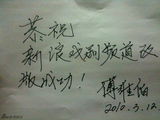 恭祝
新浪戏剧频道改
版成功！
2010.3.12.